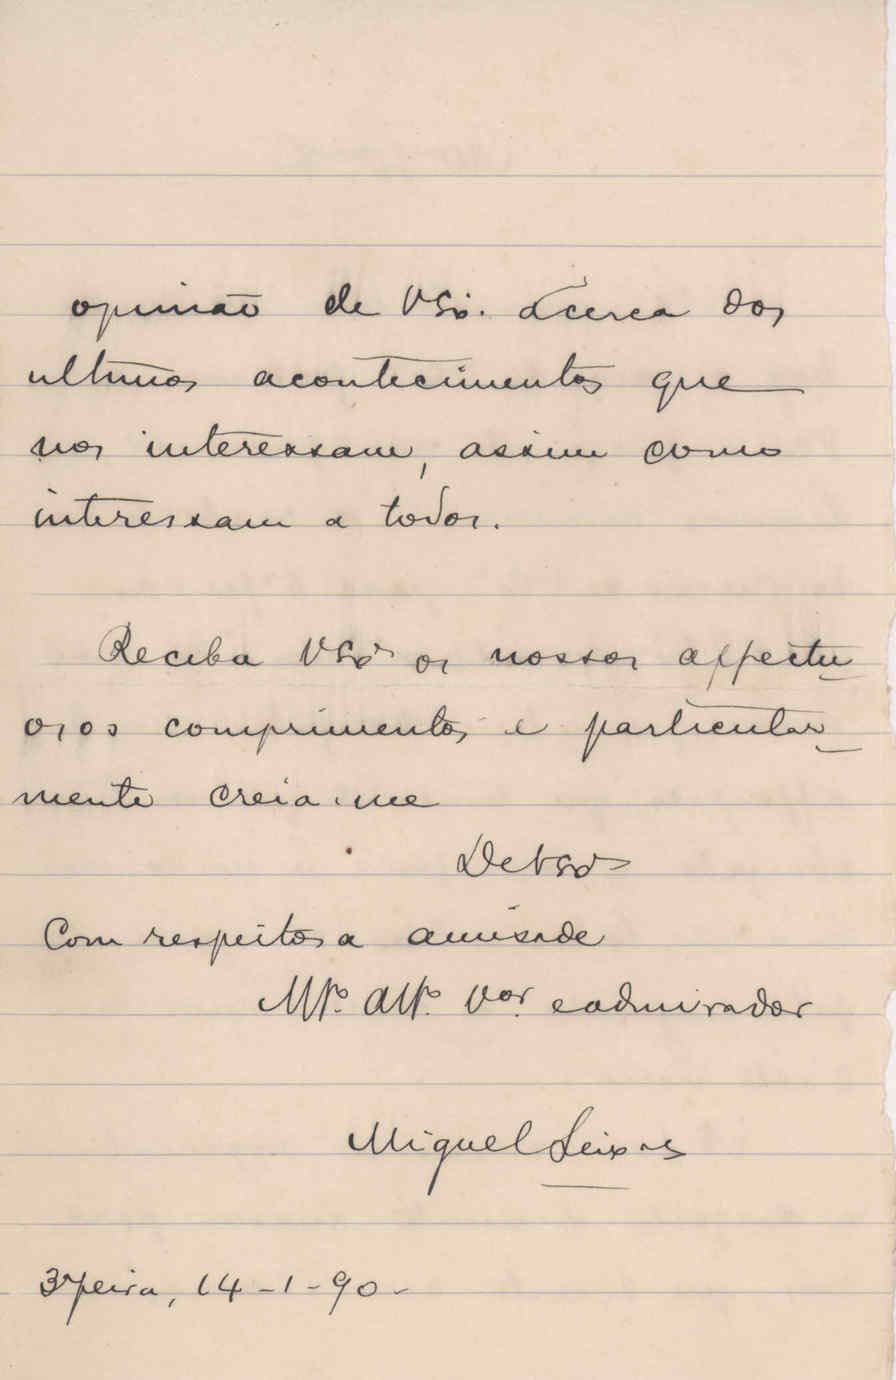 opinião de VExª. ácerca dos
ultimos acontecimentos que
nos interessam, assim como
interessam a todos.
Receba VExª os nossos affectu-
osos comprimentos e particular-
mente creia-me
De VExª
Com respeitosa amisade
Mtº. Attº. Vor. e admirador
Miguel Seixas
3ª feira, 14-1-90-